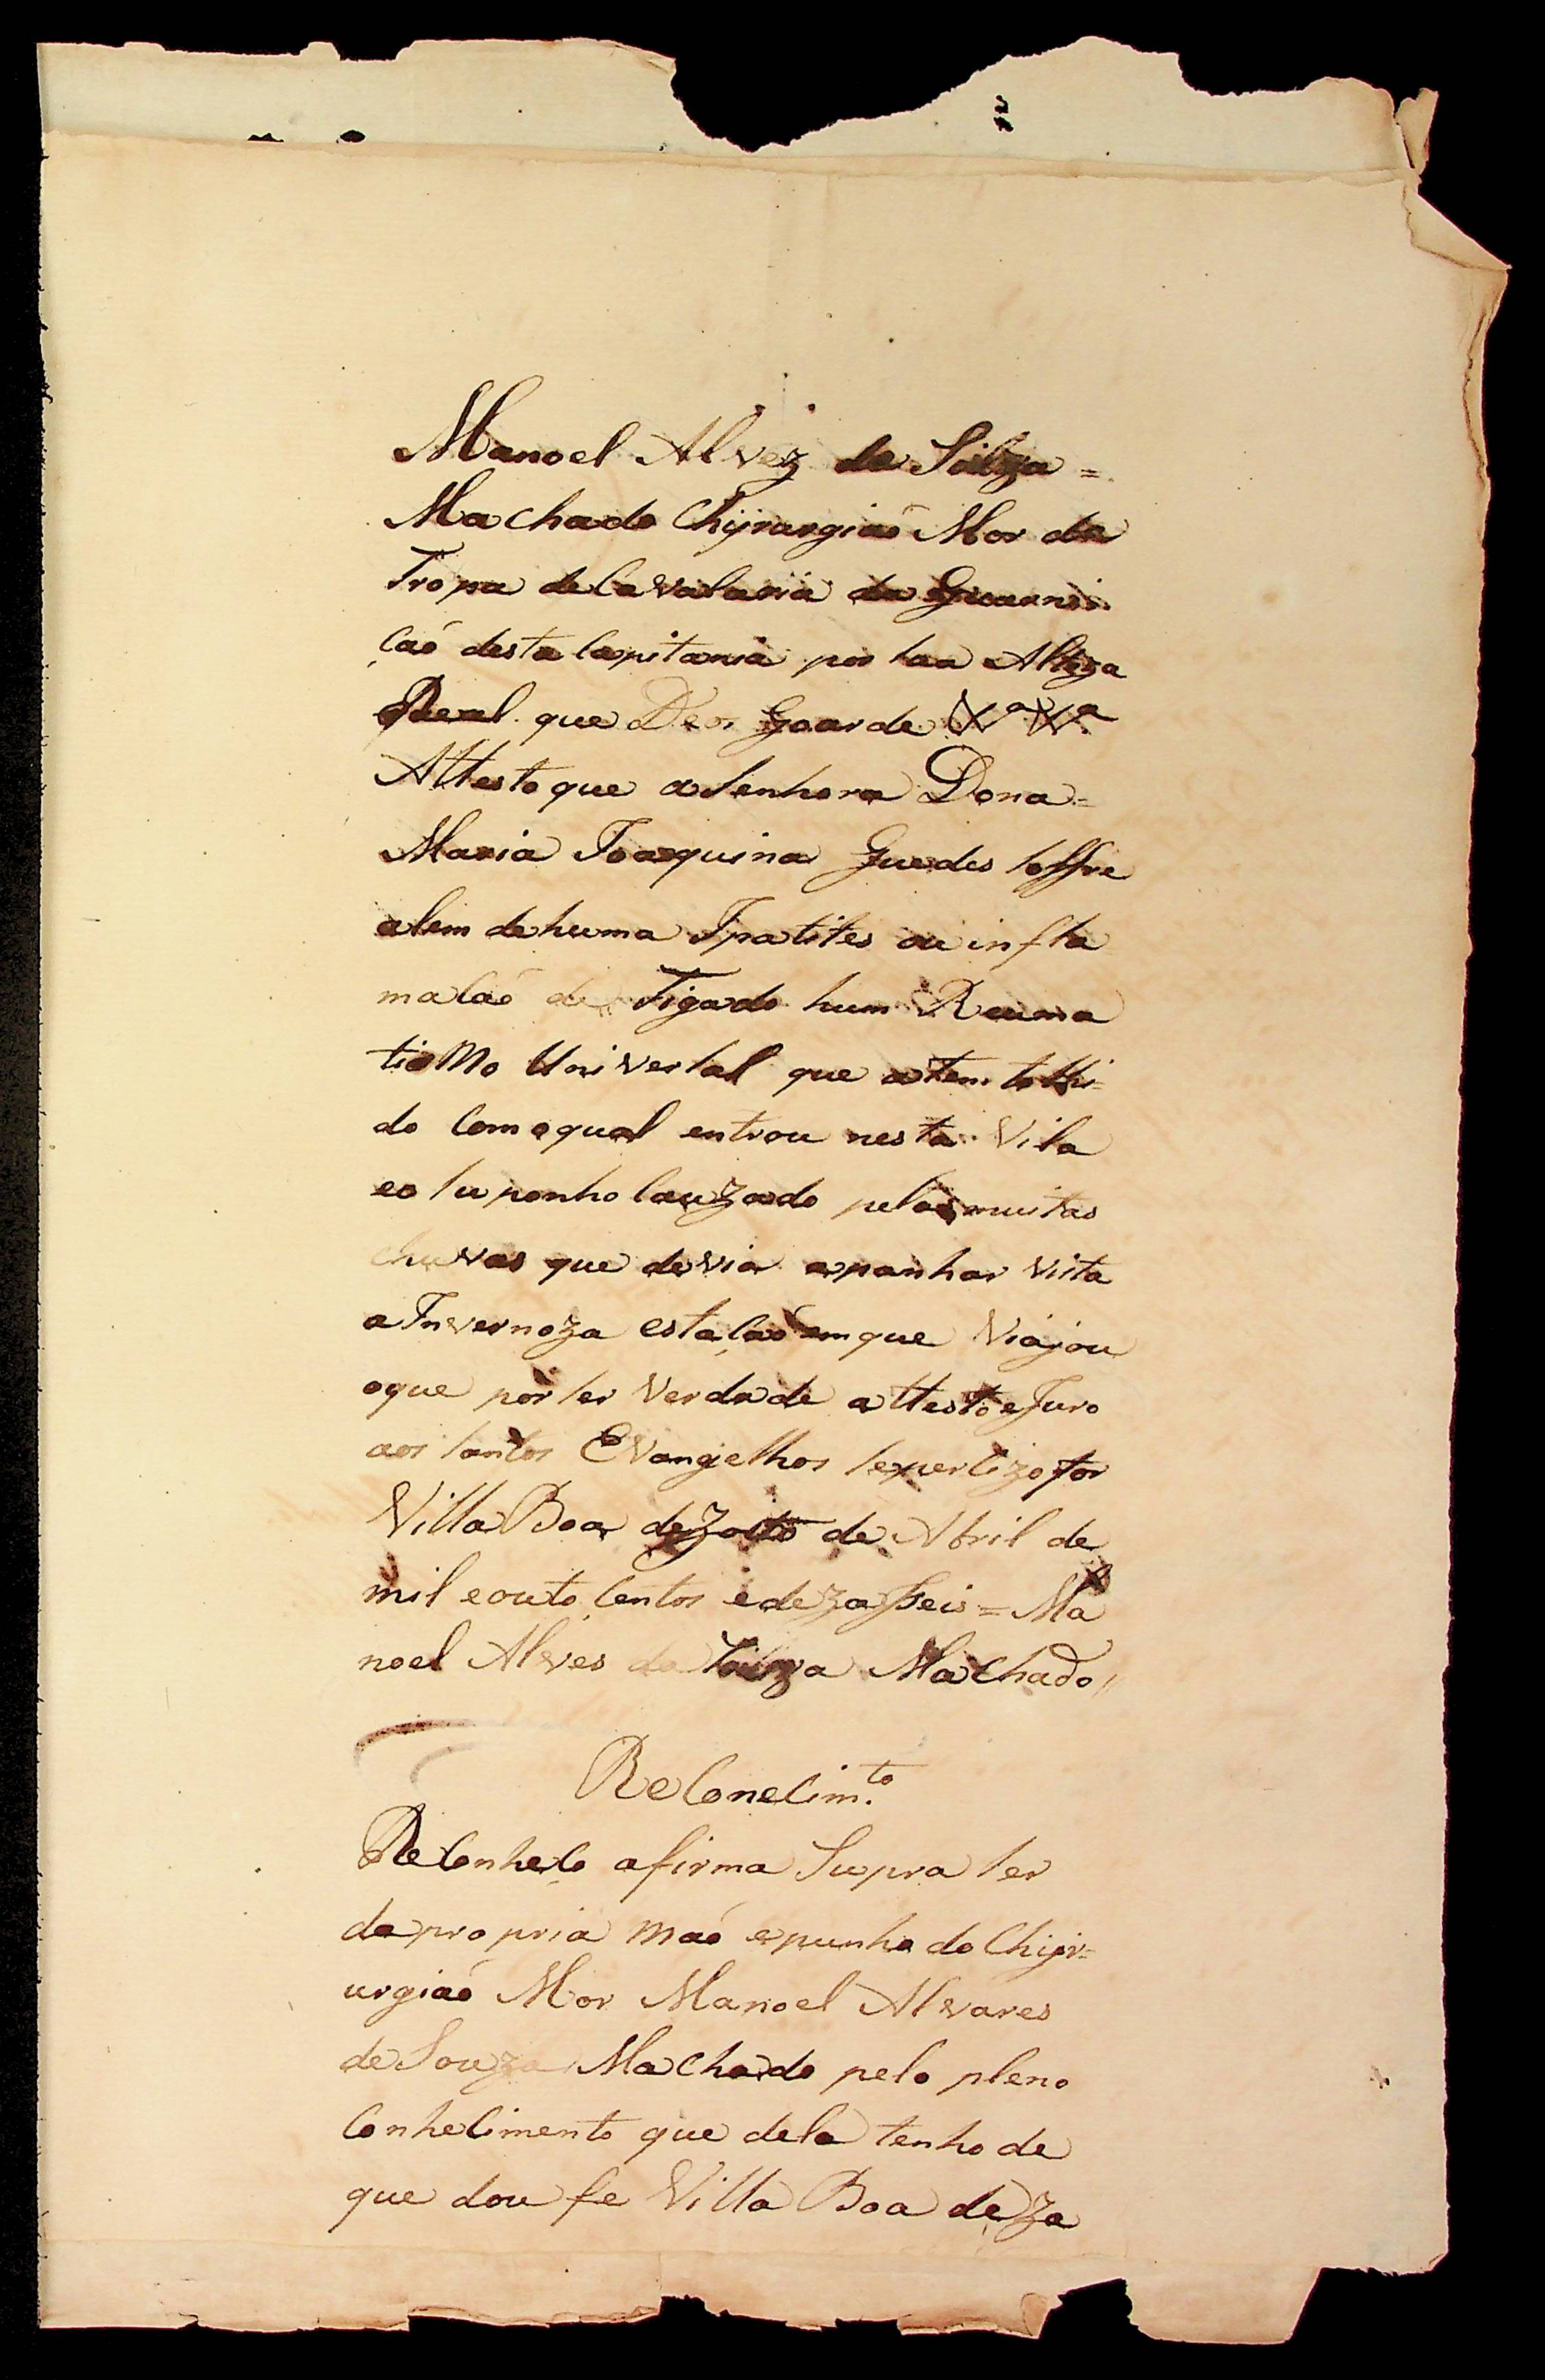 Manoel Alvez de Souza =
Machado Chyrurgiaõ Mor da
Tropa de Cavalaria da Guarni
çaõ desta Capitania por Sua Alteza
Real que Deos Guarde Vª Vª
Attesto que a Senhora Dona =
Maria Joaquina Guedes soffre
alem de huma Ipatites ou infla
macaõ de Figado hum Reuma
tismo Universal que a tem tolhi=
do com o qual entrou nesta Vila
eo suponho cauzado pelas muitas
chuvas que devia apanhar vista
a Invernoza estaçaõ em que Viajou
oque por ser Verdade attesto e Juro
aos Santos Evangelhos
Villa Boa dezoito de Abril de
mil e outo centos e dezasseis = Ma
noel Alves de Souza Machado //
Reconecim.to
Reconheço afirma Supra ser
da propria maõ e punho do Chijr=
urgiaõ Mor Manoel Alvares
de Souza Machado pelo pleno
conhecimento que dela tenho de
que dou fe Villa Boa deza